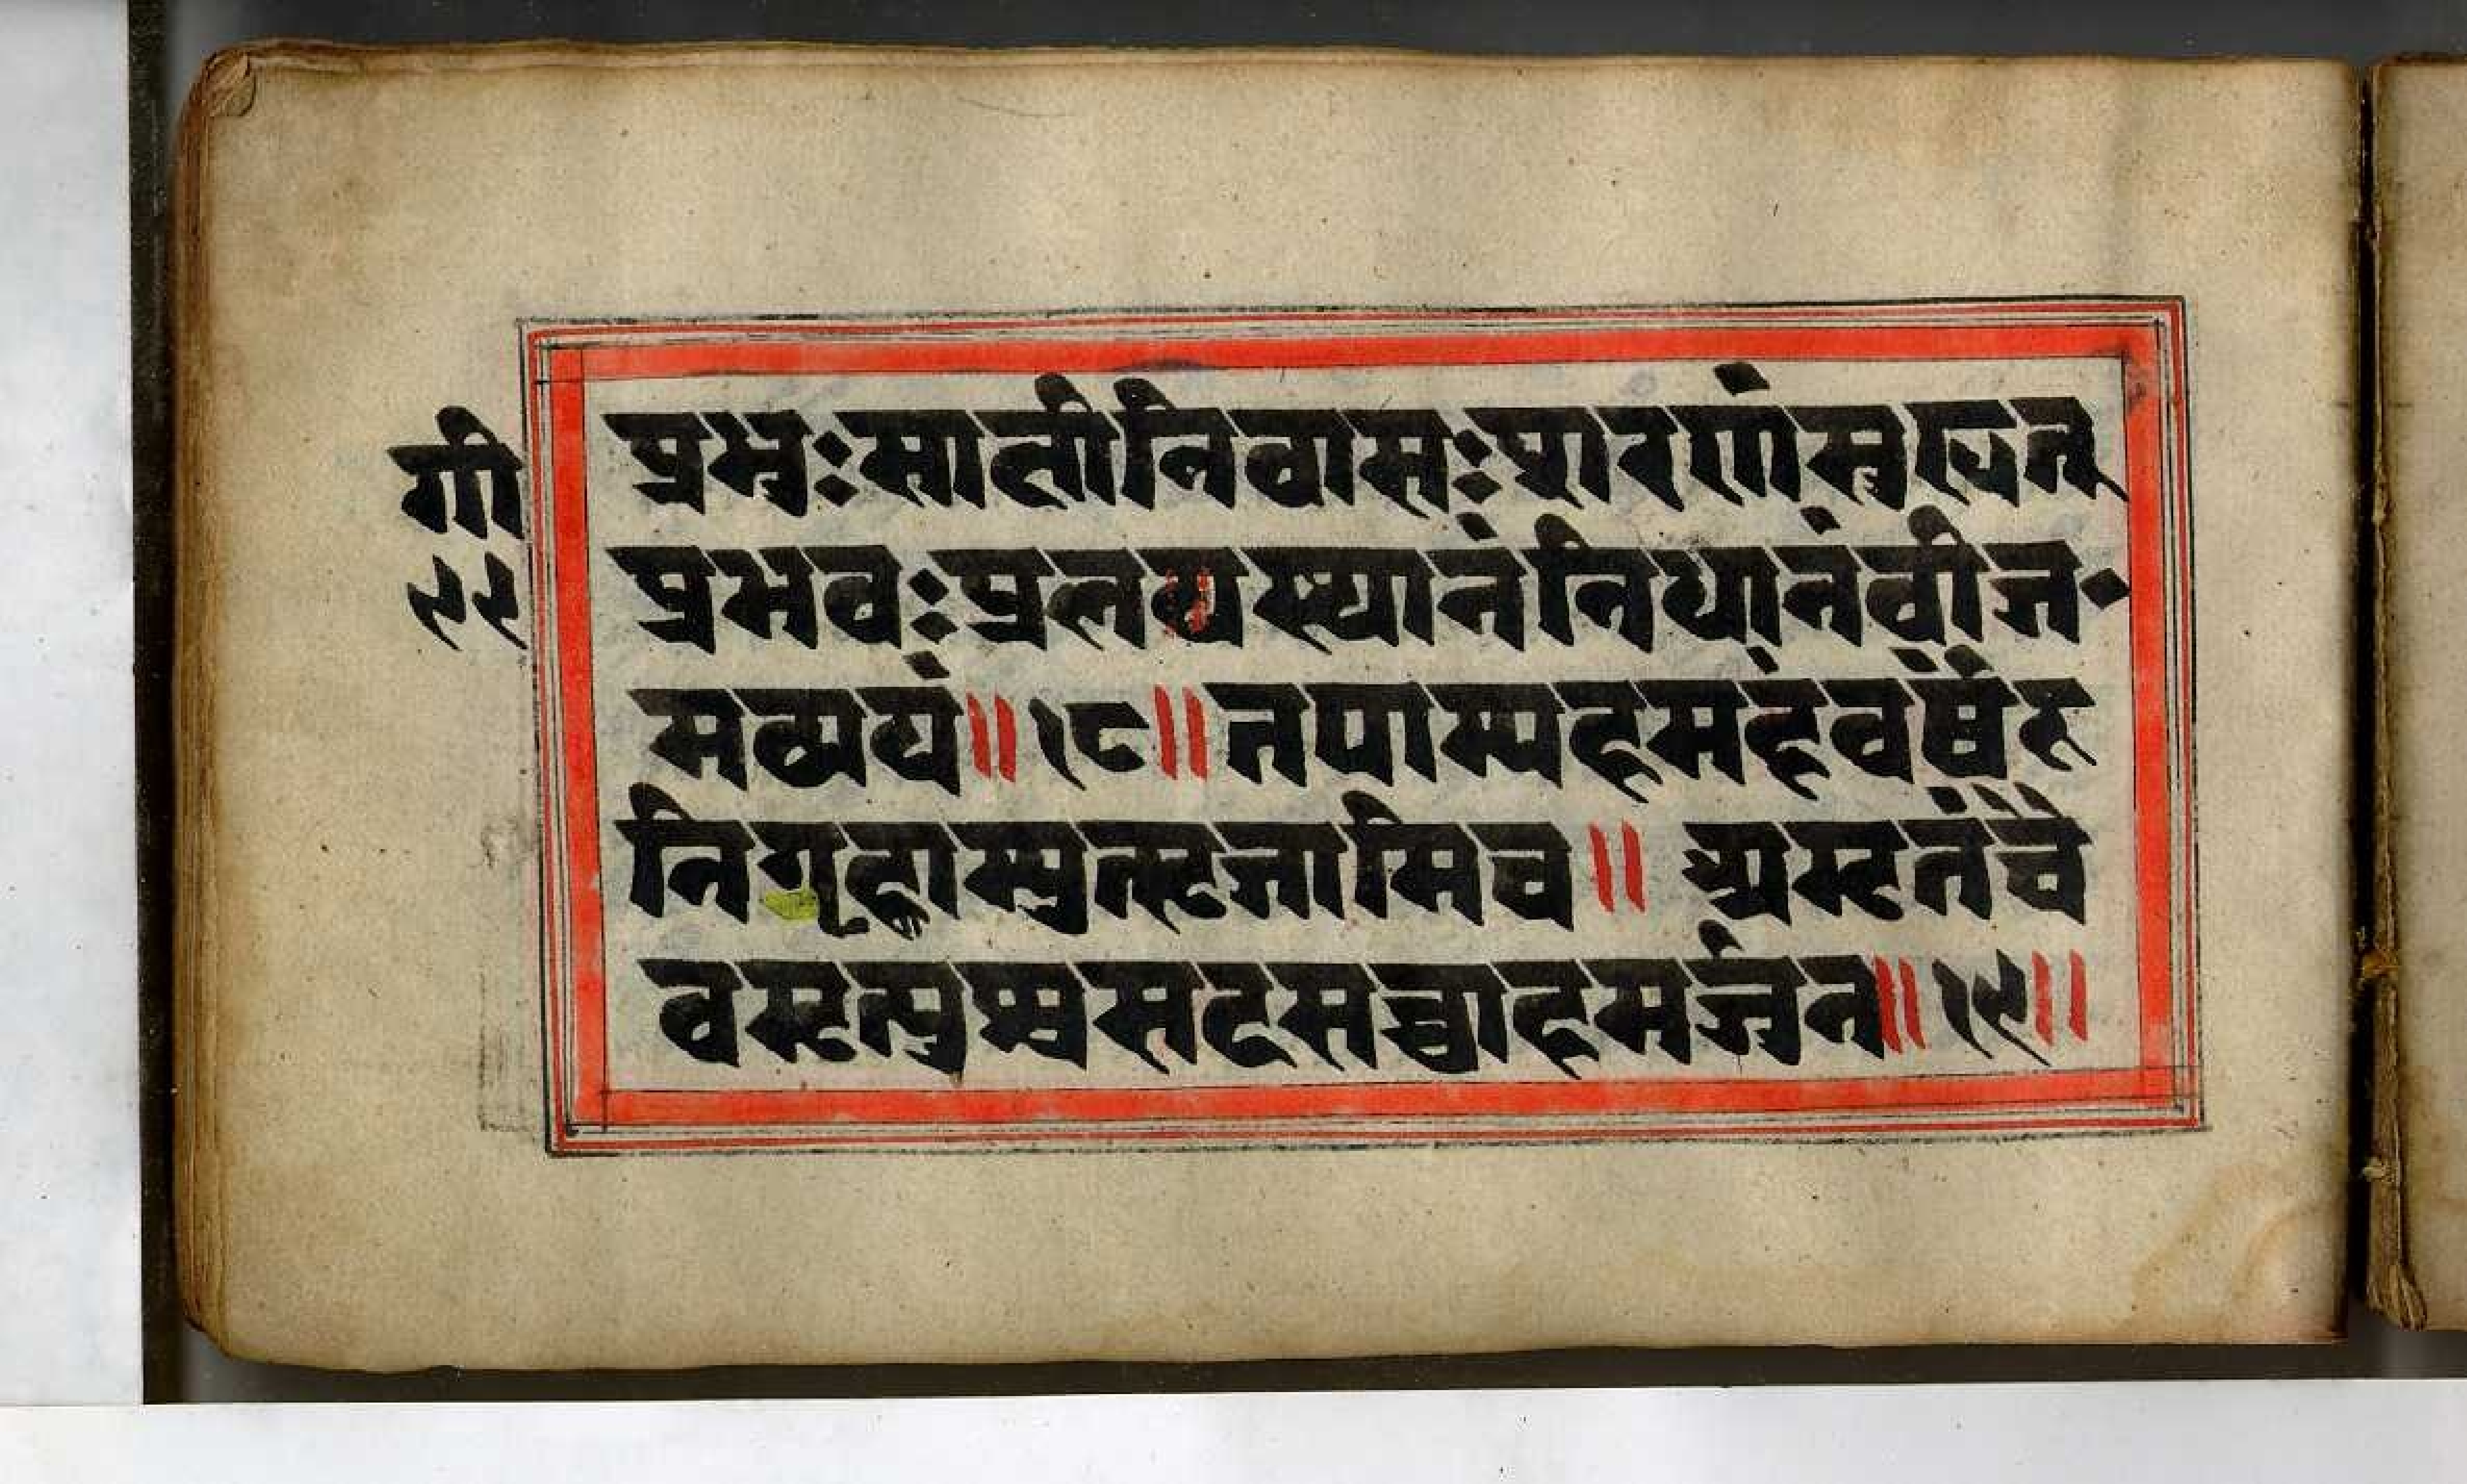 गी
९९
प्रभुःसाक्षीनिवासःशरणंसुहृत्
प्रभवःप्रलयस्थानंनिधानंवीज
मव्ययं॥१८॥तपाम्यहमहंवर्षंह
निगृह्णाम्युत्सृजामिच॥अमृतंचै
वमृत्युश्चसदसच्चाहमर्जुन॥१९॥